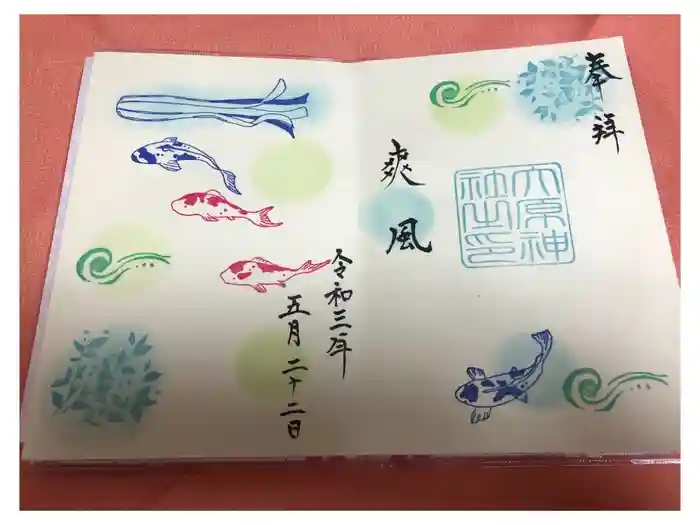 奉拝
爽風
六原神
社之印
令和三年
五月二十二日